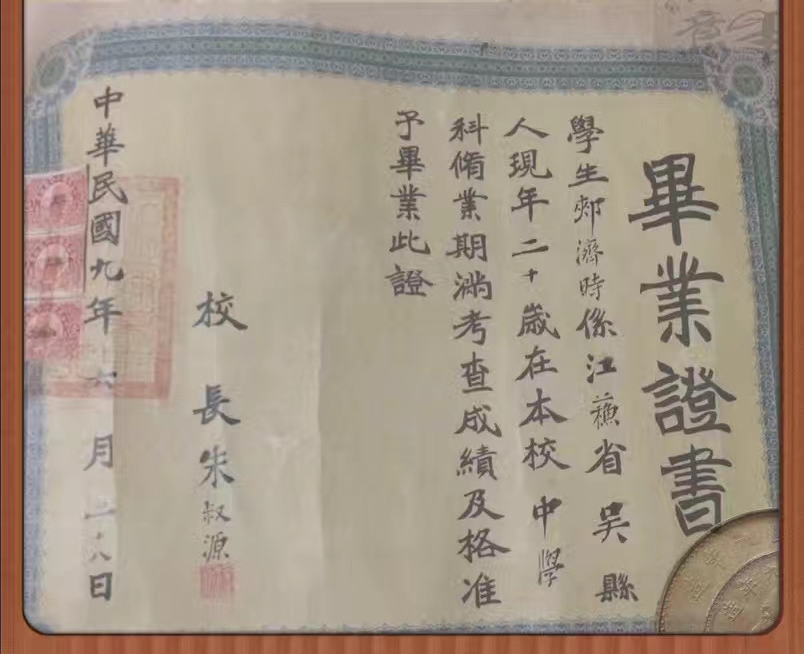 畢業證書
學生郟濟時係江蘇省吴縣
人現年二十歲在本校中學
科脩業期滿考查成績及格准
予畢業此證
校長朱叔源
中華民國九年六月二八日